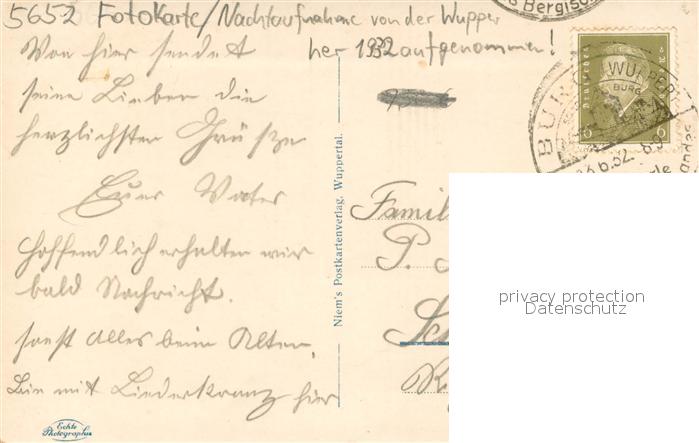 5652 Fotokarte/Nachtaufnahme von der Wupper
her 1932 aufgenommen!
s Bergisc
Von hier sendet
seine Lieben die
herzlichsten Grüsze
Euer Vater
Hoffendlich erhalten wir
bald Nachricht.
sonst alles beim Alten.
Bin mit Liederkranz hier
Echte
Photographie
Niem's Postkartenverlag, Wuppertal.
Deutsches
6 6
BURG (WUPPER)
BURG
6.32. 8-9
Famil
P.
privacy protection
Datenschutz